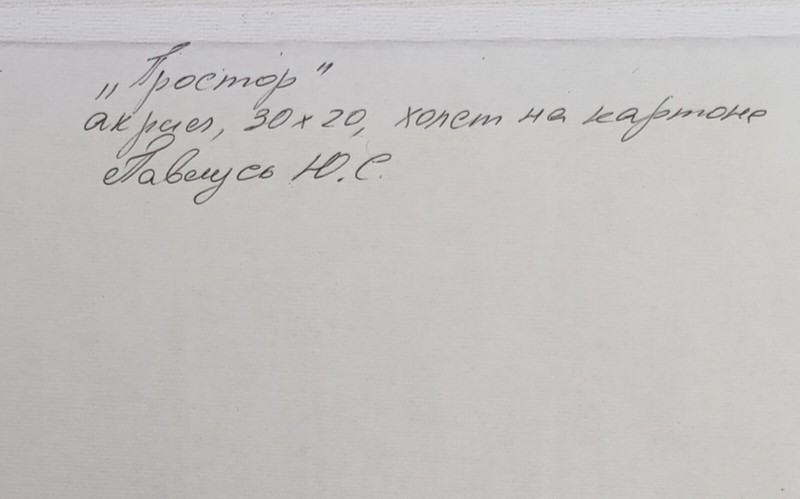 „Простор"
акрил, 30х20, холст на картоне
Павлусь Ю.С.